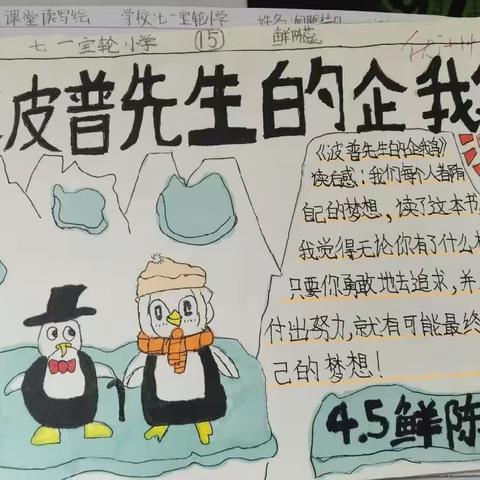 课堂读写绘 学校:七一宝轮小学 姓名
七一宝轮小学 15 鲜陈蕊
波普先生的企鹅
《波普先生的企鹅》
读后感:我们每个人都有
自己的梦想,读了这本书
我觉得无论你有了什么
只要你勇敢地去追求,并
付出努力,就有可能最终
己的梦想!
4.5鲜陈